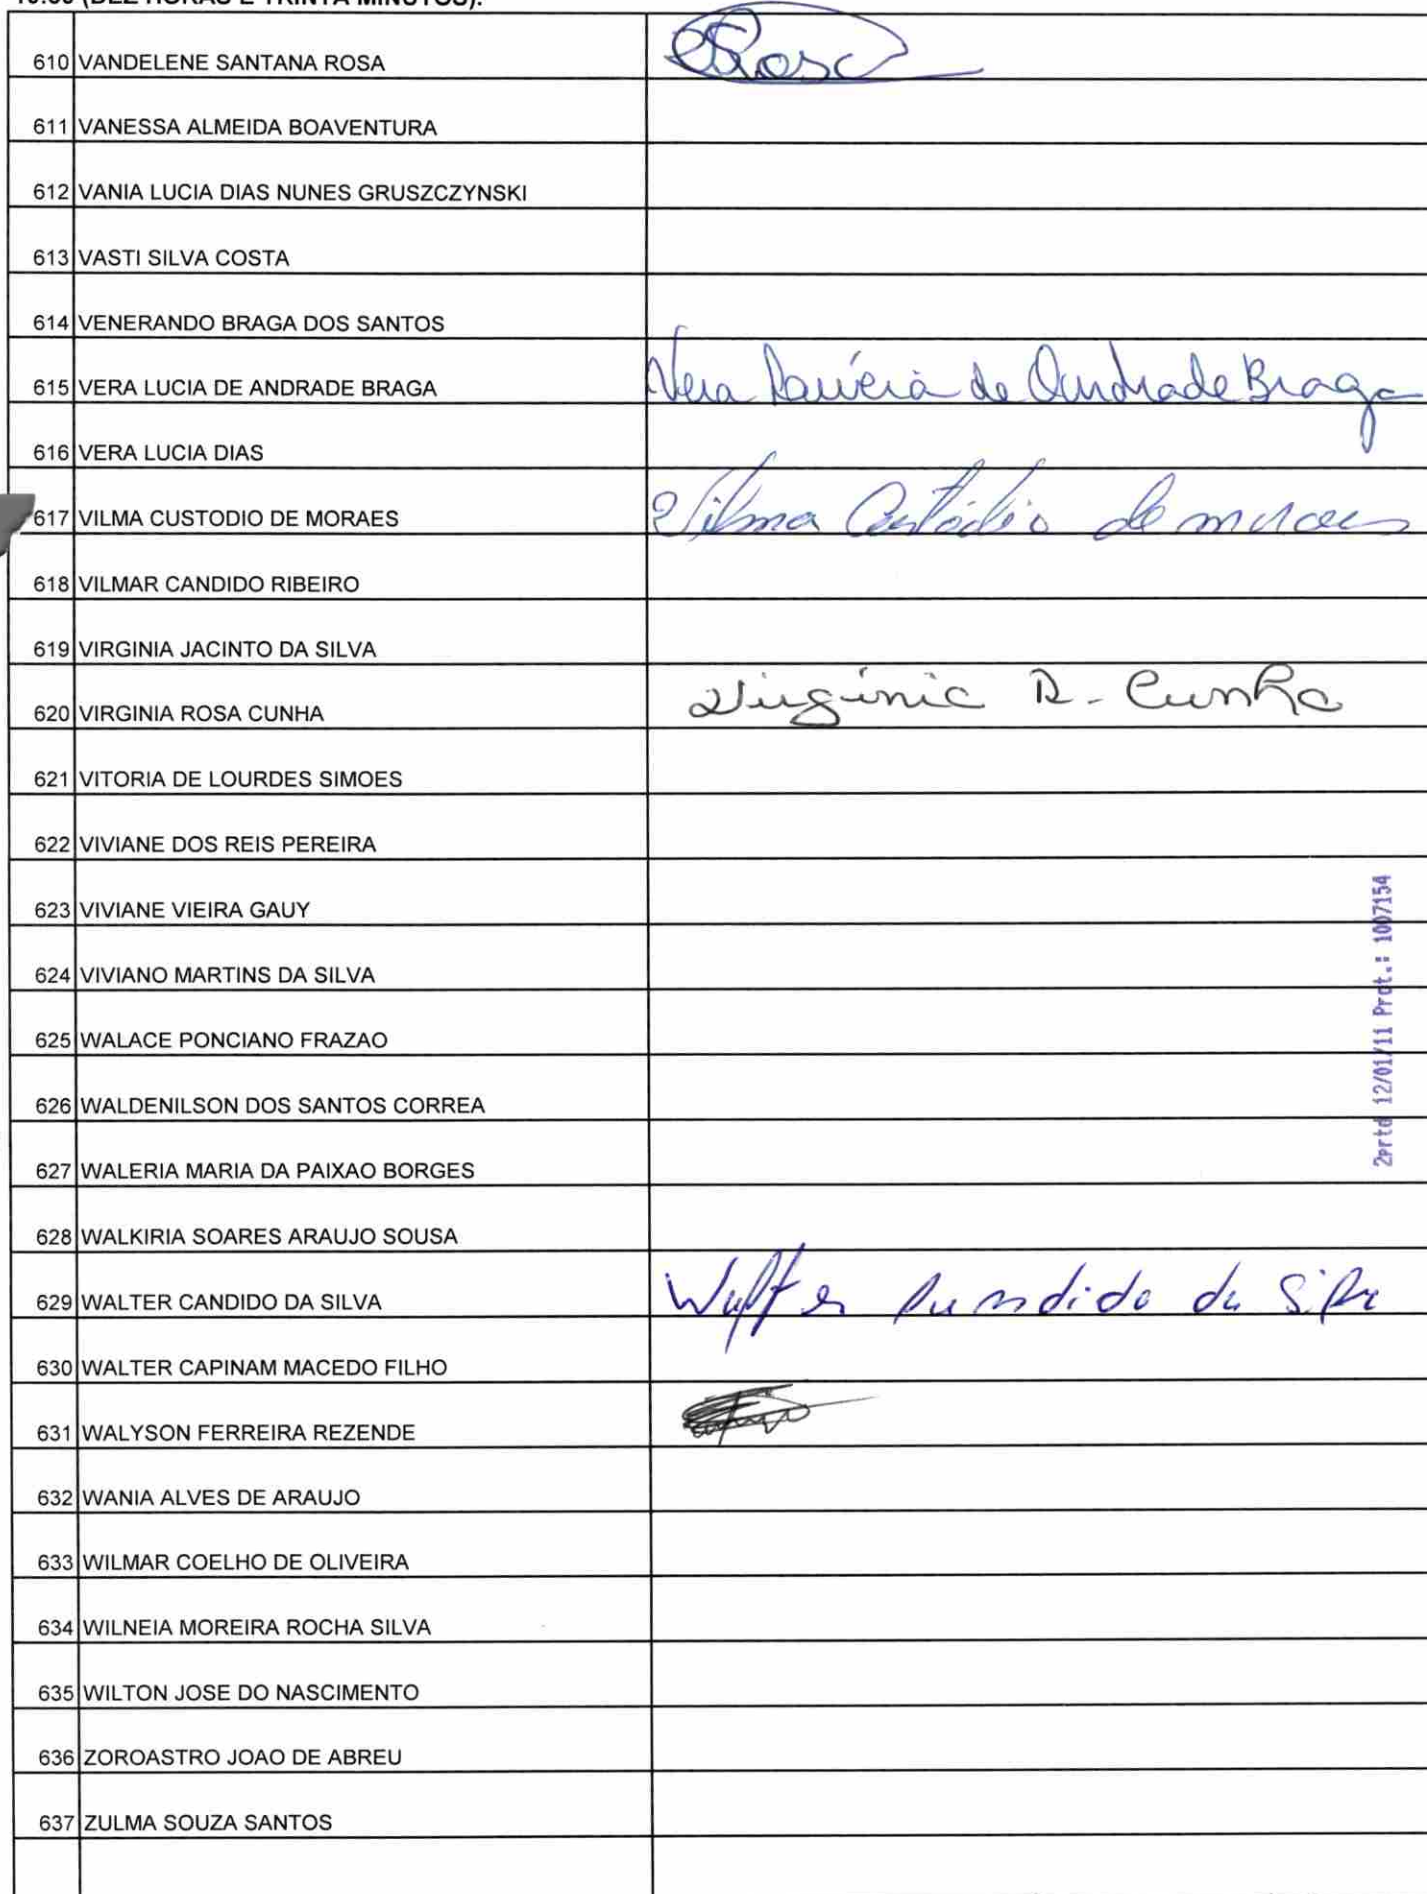 10:30 (DEZ HORAS E TRINTA MINUTOS).
610 VANDELENE SANTANA ROSA Rosa
611 VANESSA ALMEIDA BOAVENTURA
612 VANIA LUCIA DIAS NUNES GRUSZCZYNSKI
613 VASTI SILVA COSTA
614 VENERANDO BRAGA DOS SANTOS
615 VERA LUCIA DE ANDRADE BRAGA Vera de Andrade Braga
616 VERA LUCIA DIAS
617 VILMA CUSTODIO DE MORAES Vilma Custódio de moraes
618 VILMAR CANDIDO RIBEIRO
619 VIRGINIA JACINTO DA SILVA
620 VIRGINIA ROSA CUNHA Virgínia R. Cunha
621 VITORIA DE LOURDES SIMOES
622 VIVIANE DOS REIS PEREIRA
623 VIVIANE VIEIRA GAUY
624 VIVIANO MARTINS DA SILVA
625 WALACE PONCIANO FRAZAO
626 WALDENILSON DOS SANTOS CORREA
627 WALERIA MARIA DA PAIXAO BORGES
628 WALKIRIA SOARES ARAUJO SOUSA
629 WALTER CANDIDO DA SILVA Walter Candido da Silva
630 WALTER CAPINAM MACEDO FILHO
631 WALYSON FERREIRA REZENDE
632 WANIA ALVES DE ARAUJO
633 WILMAR COELHO DE OLIVEIRA
634 WILNEIA MOREIRA ROCHA SILVA
635 WILTON JOSE DO NASCIMENTO
636 ZOROASTRO JOAO DE ABREU
637 ZULMA SOUZA SANTOS
2prtd 12/01/11 Prot.: 1007154